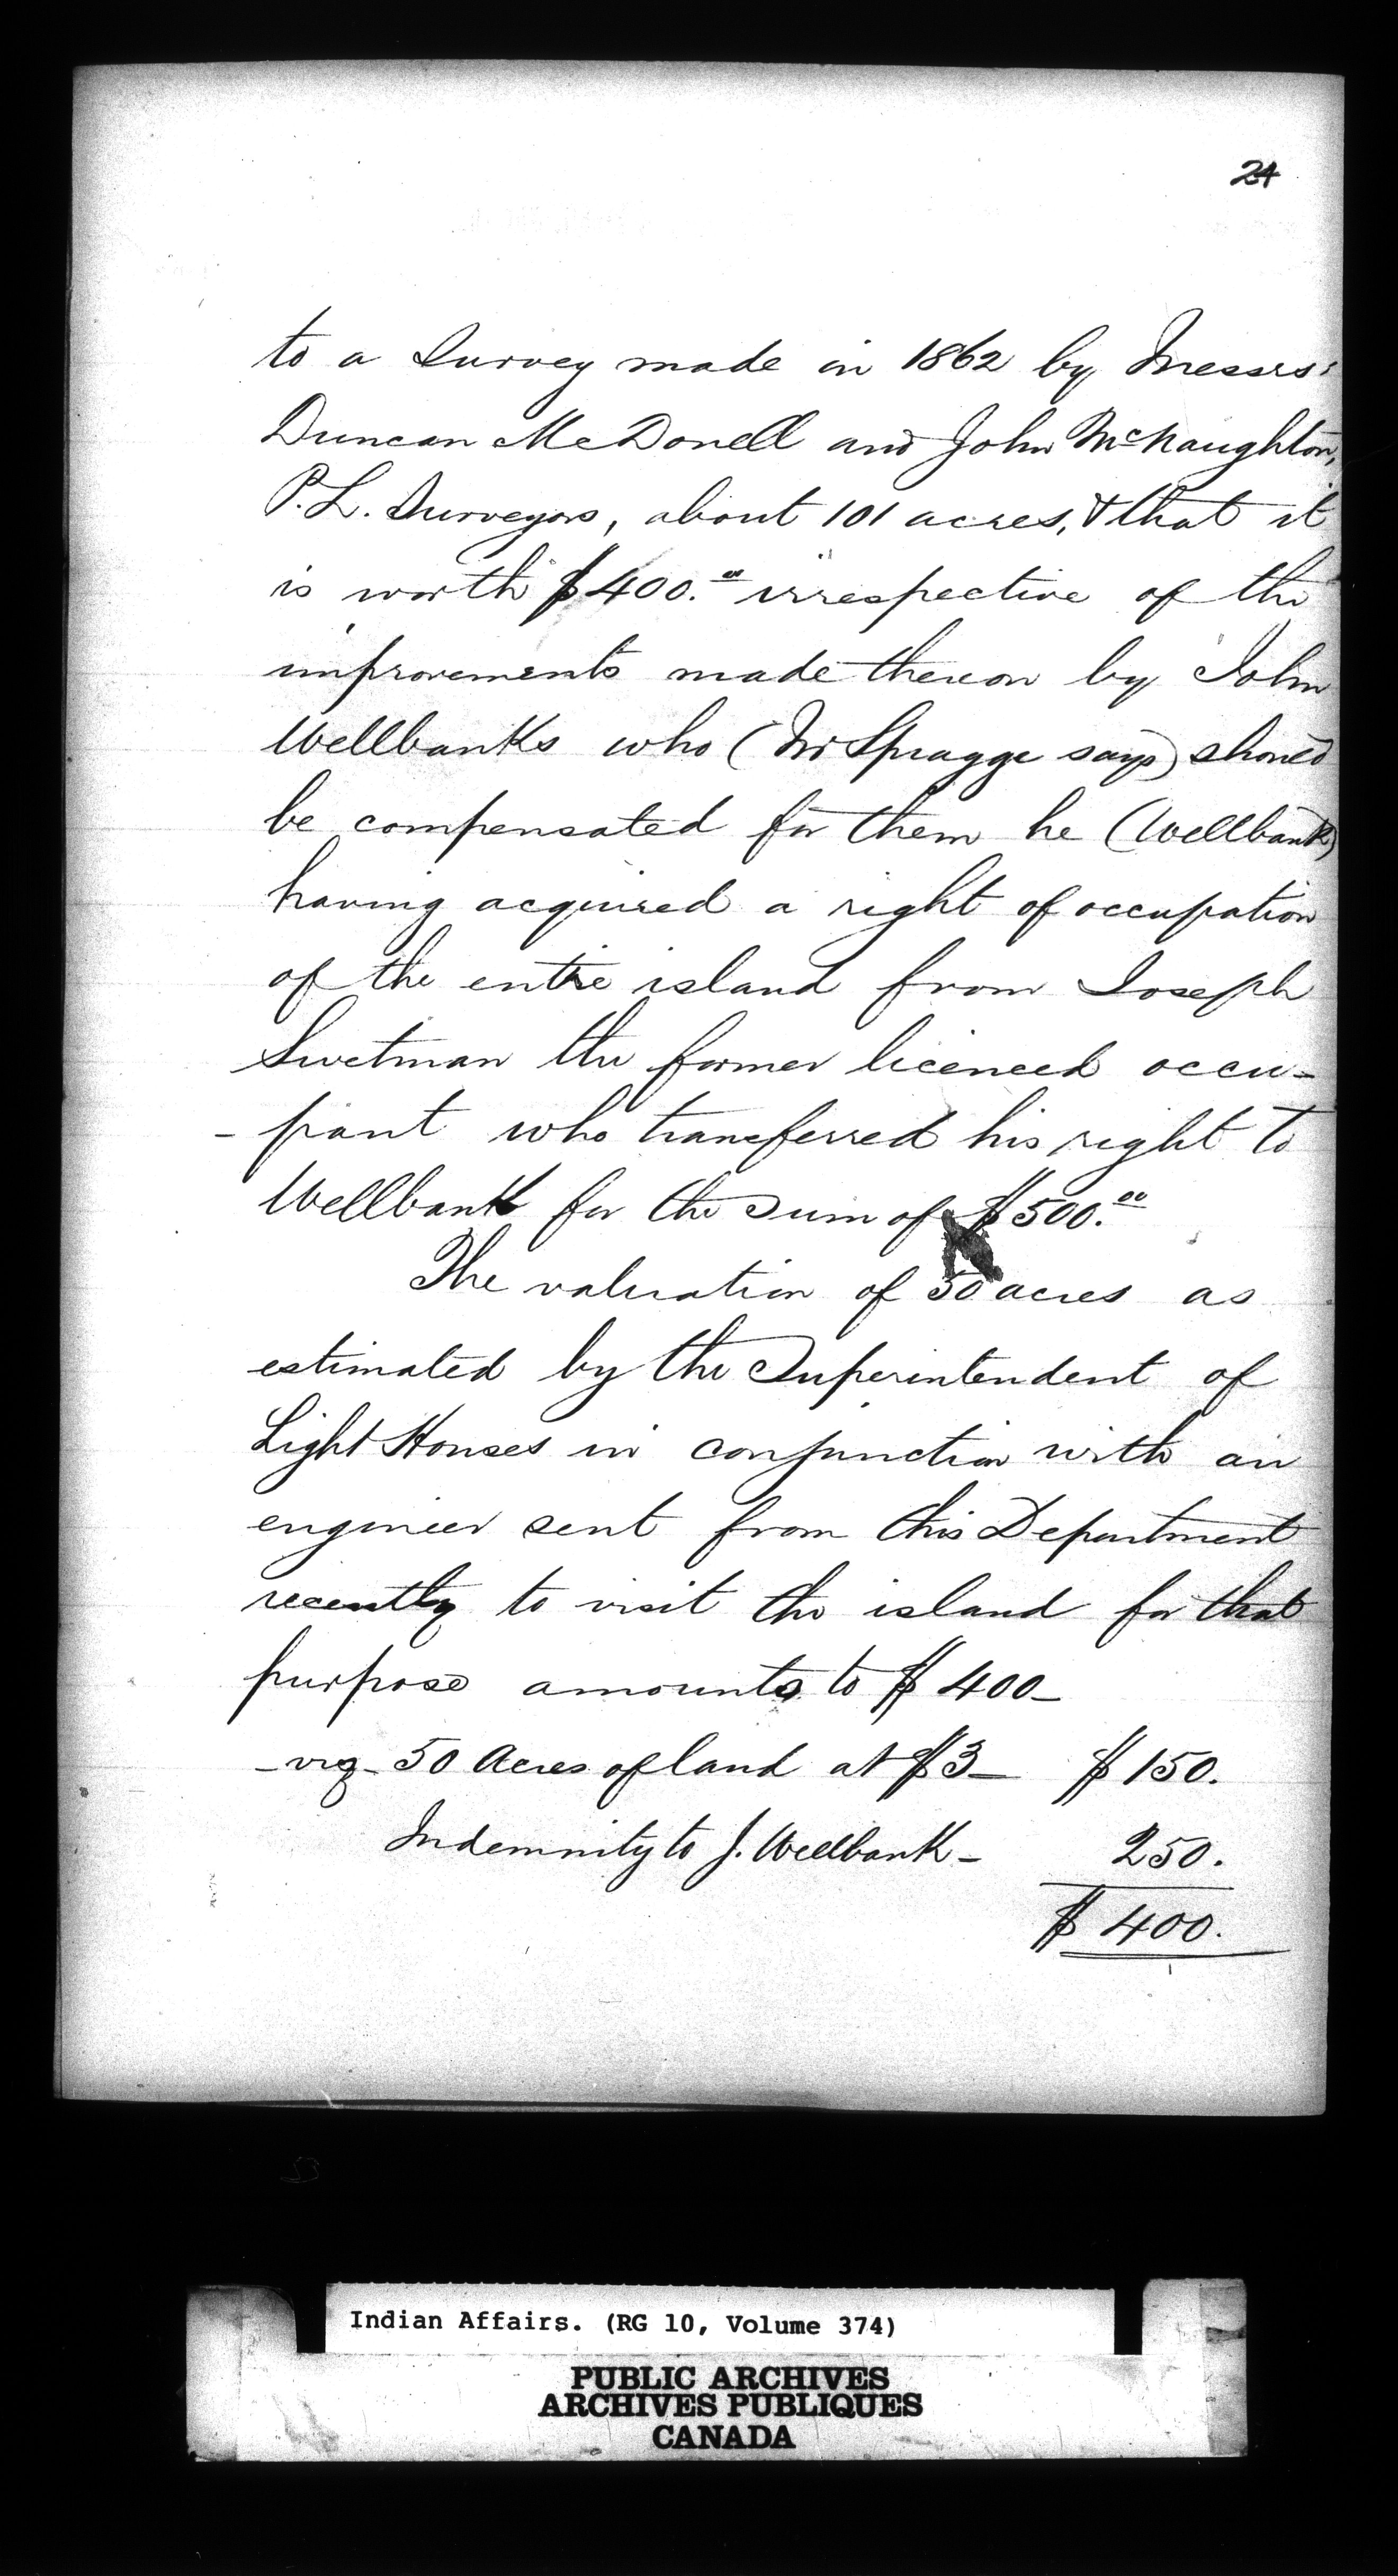 24
to a Survey made in 1862 by Messrs.
Duncan McDonell and John McNaughton,
P.L. Surveyors, about 101 acres, & that it
is worth $400.00 irrespective of the
improvements made thereon by John
Wellbanks who (Mr Spragge says) should
be compensated for them he (Wellbank)
having acquired a right of occupation
of the entire island from Joseph
Swetman the former licenced occu-
- pant who transferred his right to
Wellbank for the sum of $500.00
The valuation of 50 acres as
estimated by the Superintendent of
Light Houses in conjunction with an
engineer sent from this Department
recently to visit the island for that
purpose amounts to $400-
- viz - 50 Acres of land at $3- $150.
Indemnity to J. Wellbank - 250.
$ 400.
Indian Affairs. (RG 10, Volume 374)
PUBLIC ARCHIVES
ARCHIVES PUBLIQUES
CANADA